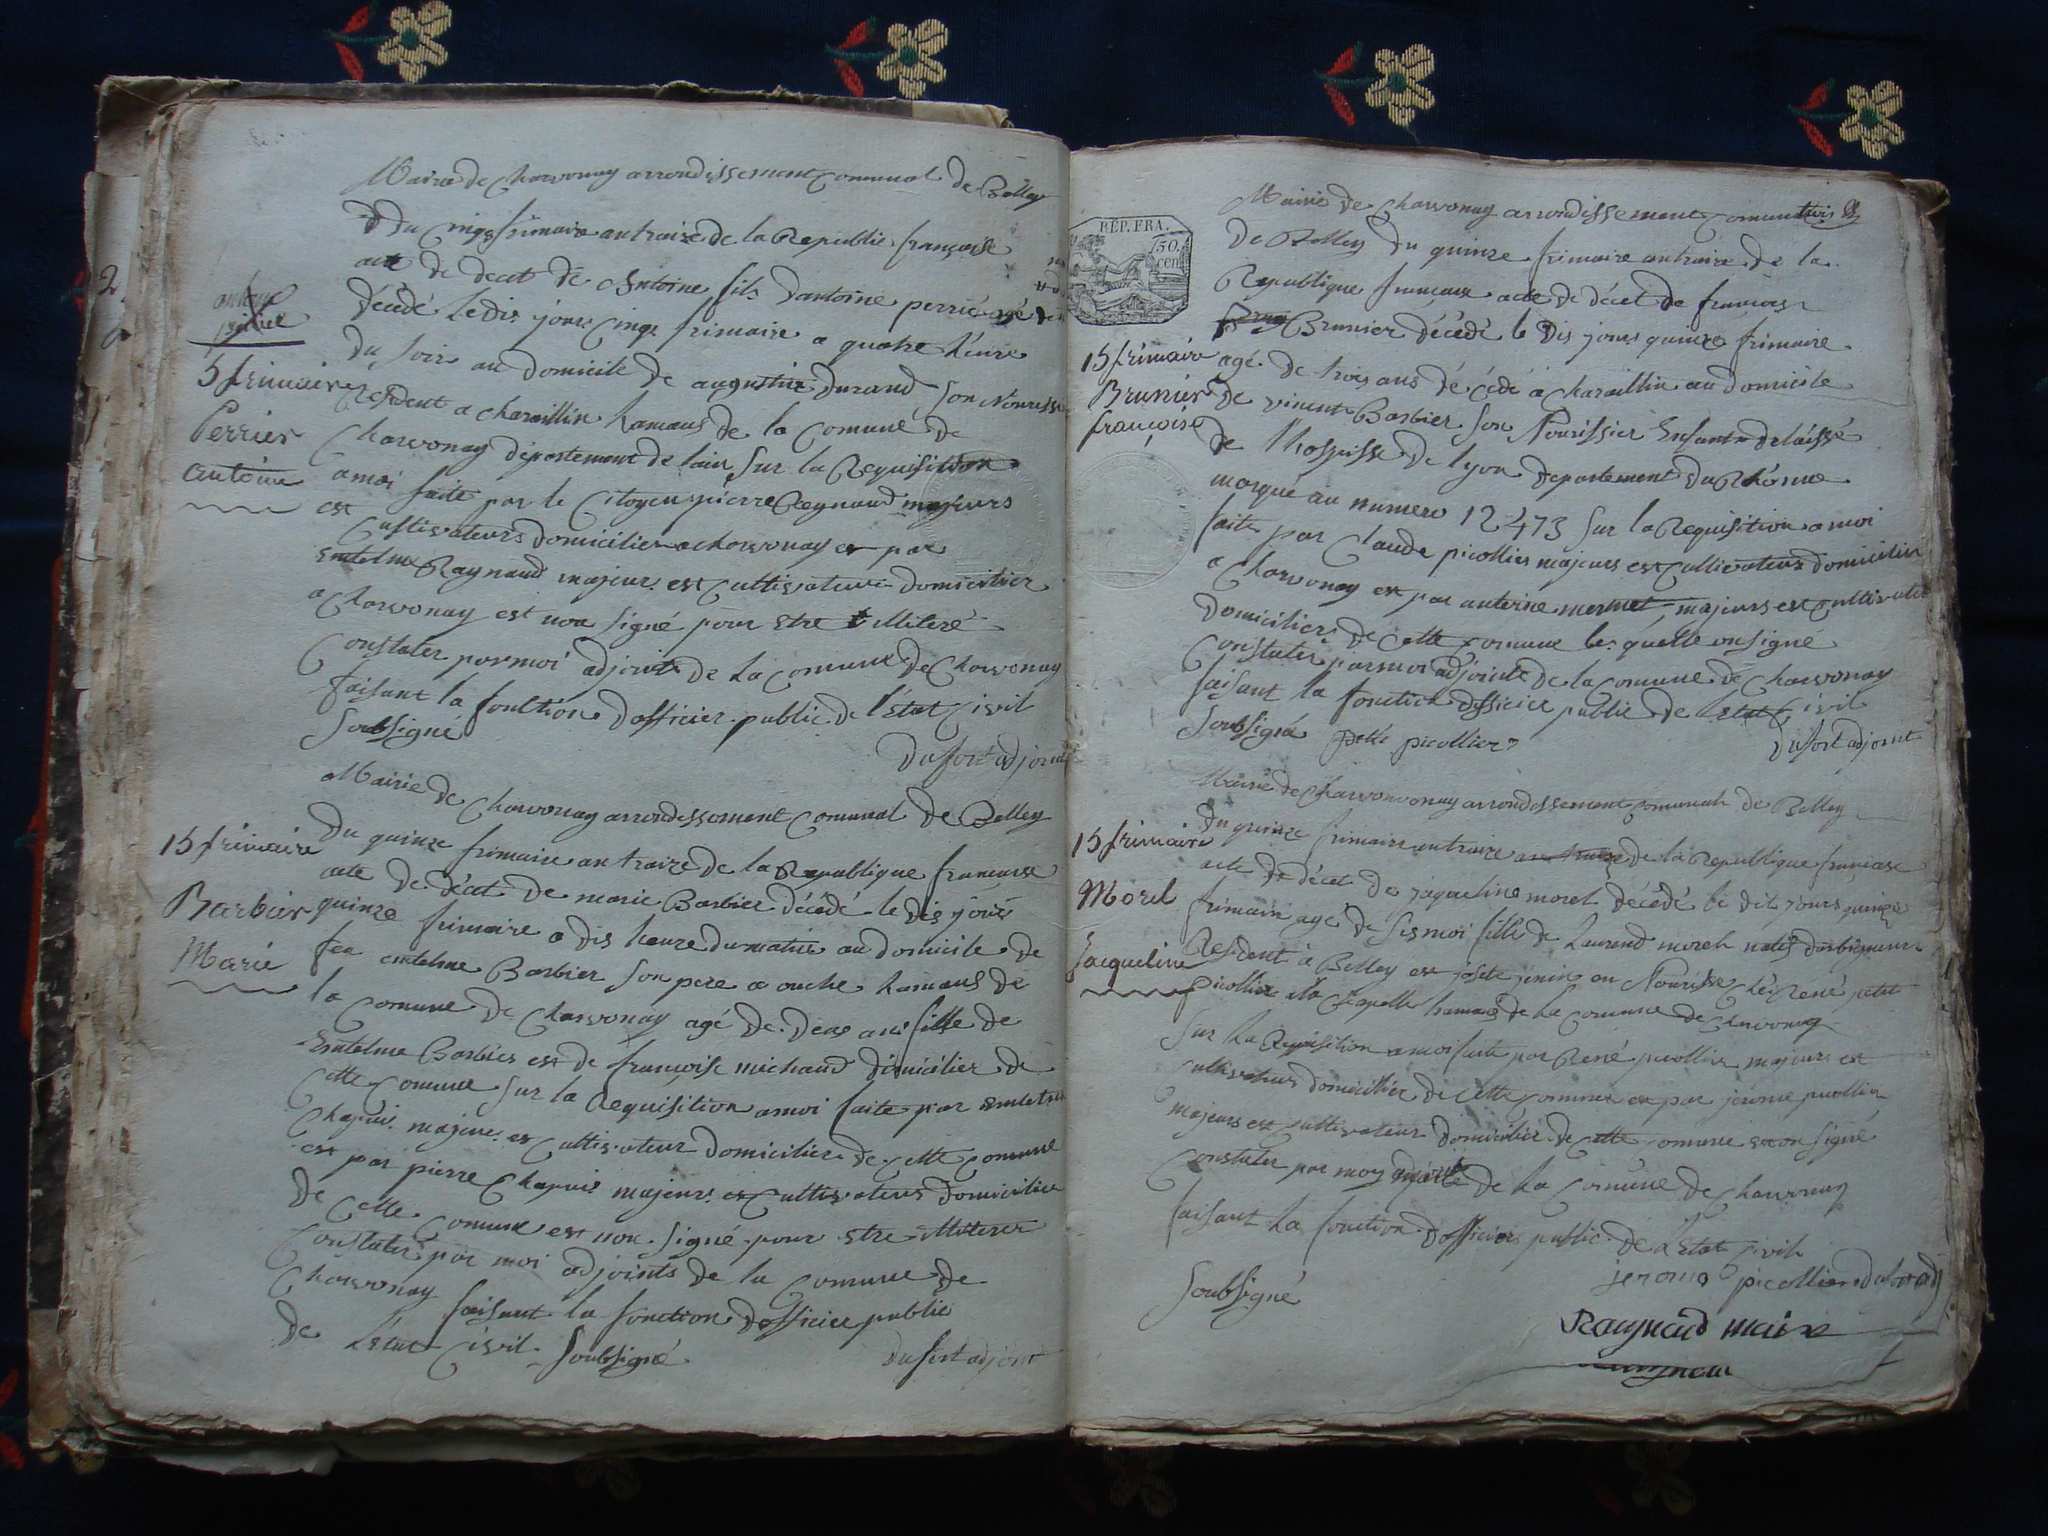 2
Mairie de Charvonay arrondissement Comunal de Belley
Du Cinq frimaire an traize de la Republic françoise
acte de decet de Antoine fils dantoine perrié agé de
décédé le dis jour Cinq frimaire a quatre heure
du soir au domicile de augustine Durand son Nourissi
Resident a charaillin hamaus de la Comune de
Charvonay département de lain sur la Requisition
a moi faite par le Citoyen pierre Reynaud majeurs
est Cultivateurs domicilier a charvonay er par
Entelme Raynaud majeur est Cultivateur domicilier
a Charvonay est non signé pour etre illiteré
Constater par moi adjoint de la Comune de Charvonay
faisant la fonction dofficier public de l'état Civil
Soubsigné
Dufort adjoint
5 frimaire
Perrier
antoine
Mairie de Charvonay arrondissement Comunal de Belley
Du quinze frimaire an traize de la Republique francoise
acte de décet de marie Barbier décédé le dis jour
quinze frimaire a dis heure du matin au domicile de
feu entelme Barbier son pere a ouche hamaus de
la Comune de Charvonay agé de deus ans fille de
Entelme Barbier est de françoise michaud domicilier de
Cette Comune sur la Requisition a moi faite par
Chapui majeur er Cultivateur domicilier de Cette Comune
est par pierre Chapui majeur er Cultivateurs domicilier
de Cette Comune est non signé pour etre illiterer
Constater par moi adjoints de la Comune de
Charvonay faisant la fonction dofficier public
de L'état Civil Soubsigné
Dufort adjoint
15 frimaire
Barbier
Marie
RÉP. FRA.
50.
cen
Mairie de Charvonay arrondissement Comunal
de Belley du quinze frimaire an traize de la
Republique françoise acte de décet de francois
Brunier décédé le dis jours quinze frimaire
agé de trois ans décédé a Charaillin au domicile
de vincent Barbier son Nourissier Enfant delaissé
de l'hospisse de lyon departement du Rhonne
marqué au numero 12473 sur la Requisition a moi
faite par Claude picollier majeurs est Cultivateur domicilier
a Charvonay er par antoine mermet majeurs est Cultivateur
domicilier de Cette Comune les quelle on signé
Constater par moi adjoint de la Comune de Charvonay
faisant la fonction dofficier public de letat Civil
Soubsigné picollier
Dufort adjoint
15 frimaire
Brunier
françois
Mairie de Charvonvonay arrondissement Comunal de Belley
Du quinze frimaire an traize de la Republique francoise
acte de décet de jaqueline morel décédé le dit jours quinze
frimaire agé de sis moi fille de Laurend morel
Resident à Belley er josete jenin en Nourisse Ché René petit
picollier a la Chapelle hamaus de la Comune de Charvonay
sur la Requisition a moi faite par René picollier majeurs er
Cultivateur domicillier de Cette Comune er par jérome picollier
majeurs est Cultivateur domicilier de Cette Comune on signé
Constater par moy adjoint de la Comune de Charvonay
faisant la fonction dofficier public de l'Etat Civil
Soubsigné
jerome picollier
Raynaud maire
15 frimaire
Morel
Jacqueline